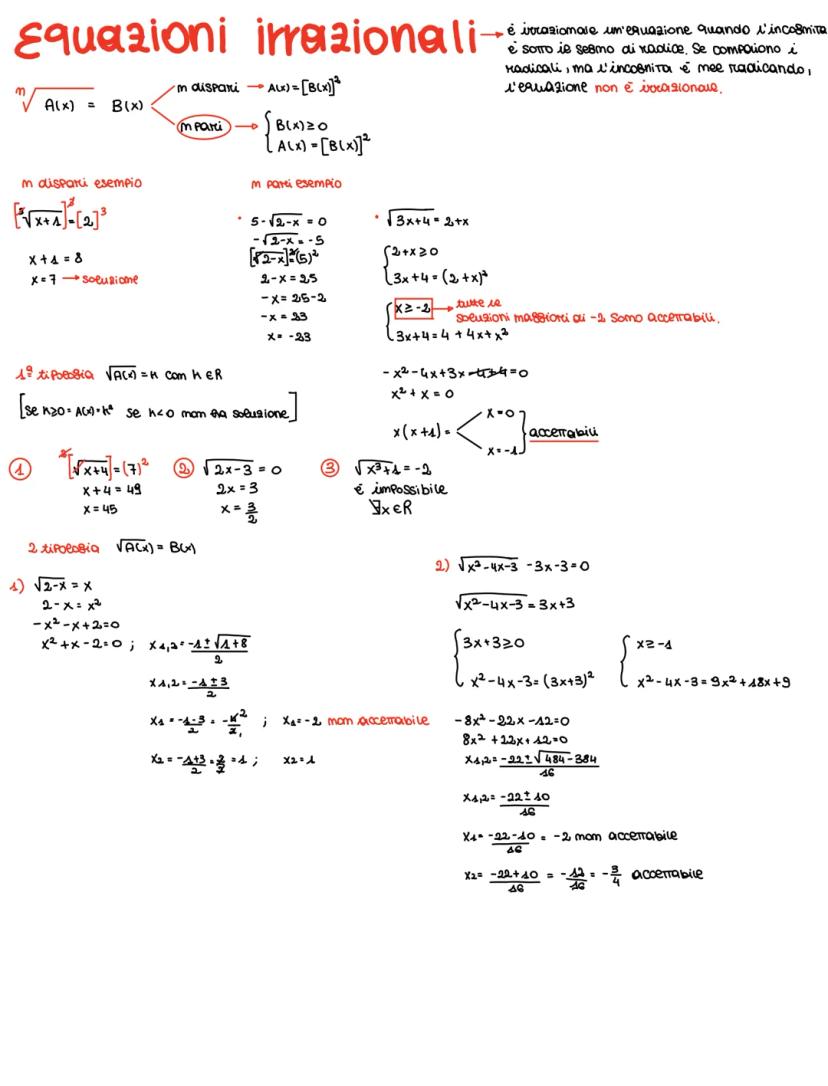 Equazioni irrazionali → è irrazionale un'equazione quando l'incognita
è sotto il segno di radice. Se compaiono i
radicali, ma l'incognita è nel radicando,
l'equazione non è irrazionale.
ⁿ√A(x) = B(x)
n dispari → A(x) = [B(x)]²
n pari → { B(x) ≥ 0
A(x) = [B(x)]²
n dispari esempio
[³√x+1]³ = [2]³
x+1 = 8
x = 7 → soluzione
n pari esempio
• 5-√2-x = 0
-√2-x = -5
[√2-x]² = (5)²
2-x = 25
-x = 25-2
-x = 23
x = -23
• √3x+4 = 2+x
{ 2+x ≥ 0
3x+4 = (2+x)²
{ x ≥ -2 → tutte le
soluzioni maggiori di -2 sono accettabili.
3x+4 = 4+4x+x²
-x²-4x+3x-4+4=0
x²+x = 0
x(x+1) =
x = 0
x = -1
accettabili
1ª tipologia √A(x) = k con k ∈ R
[se k≥0 = A(x)=k² se k<0 non ha soluzione]
1 [√x+4]² = (7)²
x+4 = 49
x = 45
2 √2x-3 = 0
2x = 3
x = 3/2
3 √x³+1 = -2
è impossibile
∄x ∈ R
2 tipologia √A(x) = B(x)
1) √2-x = x
2-x = x²
-x²-x+2=0
x²+x-2=0 ; x1,2 = -1±√1+8 / 2
x1,2 = -1±3 / 2
x1 = -1-3 / 2 = -4² / 2₁ ; x1 = -2 non accettabile
x2 = -1+3 / 2 = 2/2 = 1 ; x2 = 1
2) √x²-4x-3 -3x-3=0
√x²-4x-3 = 3x+3
{ 3x+3≥0
x²-4x-3 = (3x+3)²
{ x ≥ -1
x²-4x-3 = 9x²+18x+9
-8x²-22x-12=0
8x²+22x+12=0
x1,2 = -22±√484-384 / 16
x1,2 = -22±10 / 16
x1 = -22-10 / 16 = -2 non accettabile
x2 = -22+10 / 16 = -12/16 = -3/4 accettabile